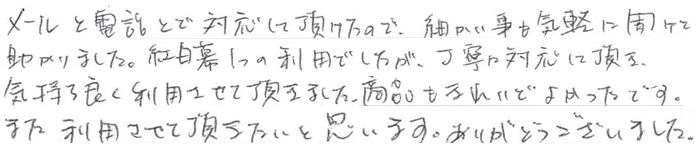 メールと電話とで対応して頂けたので、細かい事も気軽に聞けて
助かりました。紅白幕1つの利用でしたが、丁寧に対応して頂き、
気持ち良く利用させて頂きました。商品もきれいでよかったです。
また利用させて頂きたいと思います。ありがとうございました。